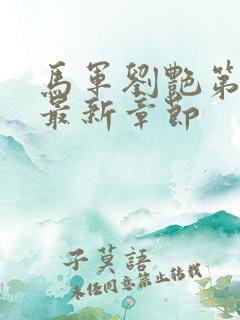 馬軍劉艷第
最新章節
子莫語
未经同意禁止转载